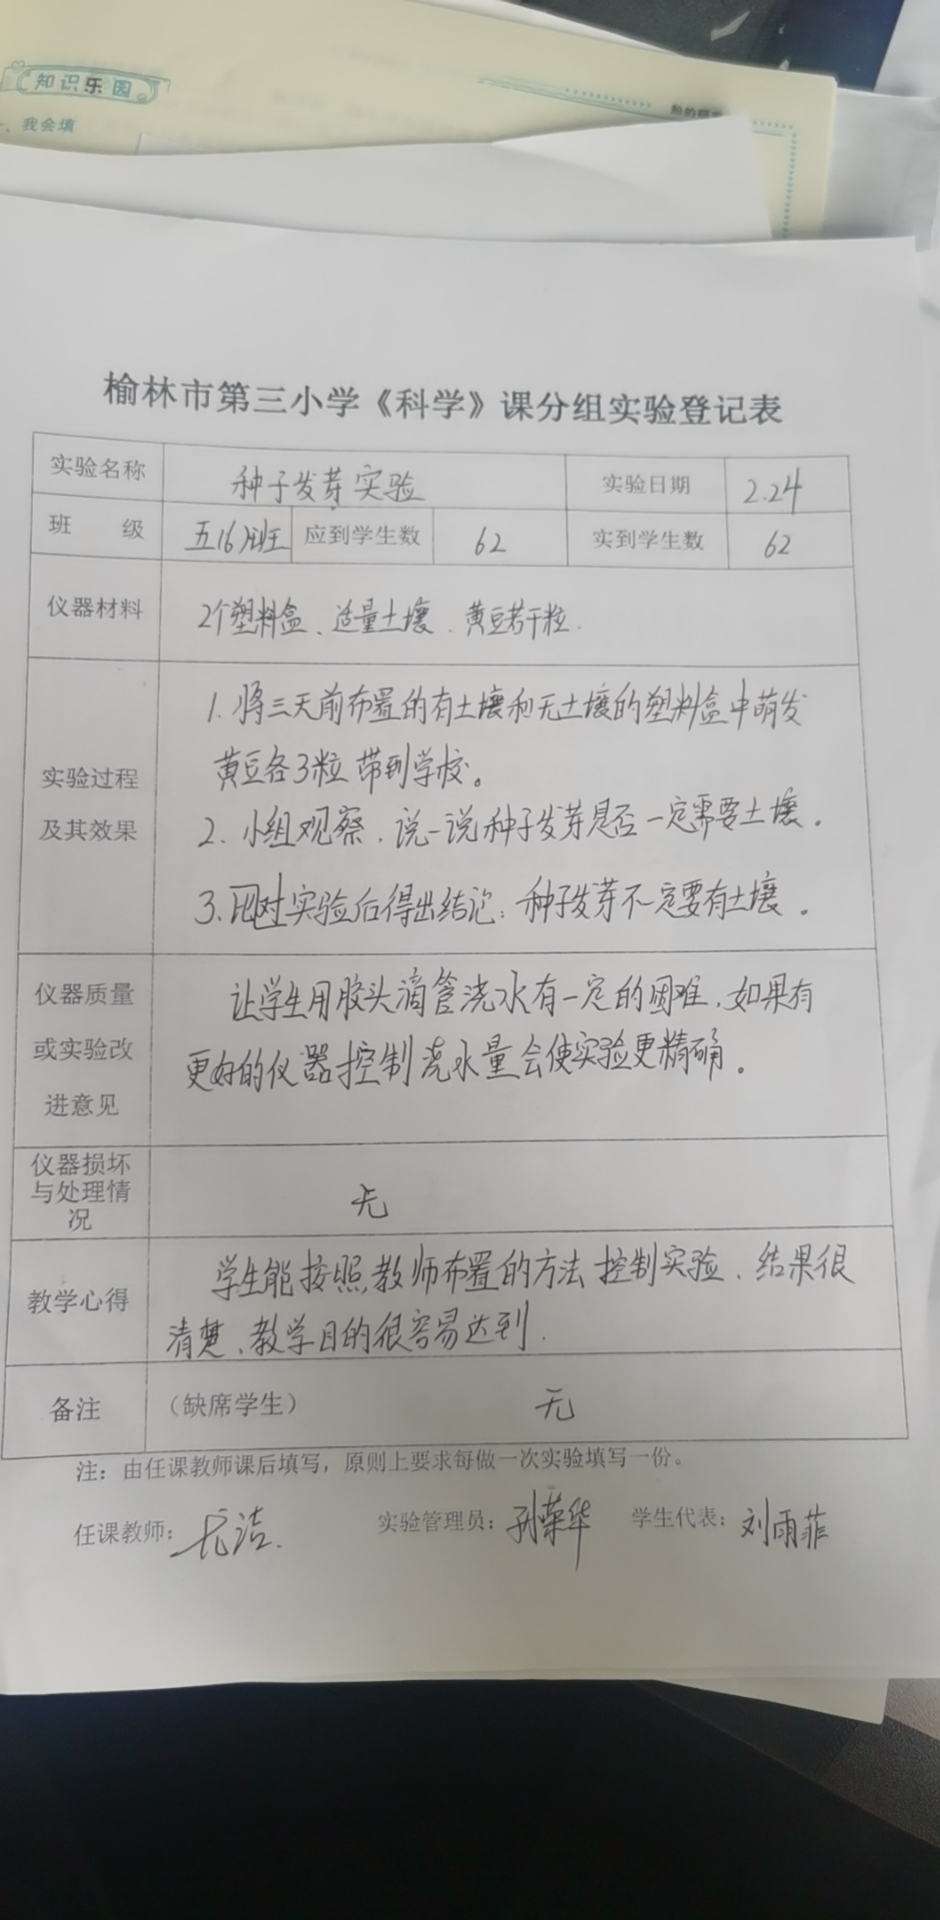 知识乐园
、我会填
榆林市第三小学《科学》课分组实验登记表
实验名称 种子发芽实验 实验日期 2.24
班 级 五16班 应到学生数 62 实到学生数 62
仪器材料 2个塑料盒、适量土壤、黄豆若干粒.
1.将三天前布置的有土壤和无土壤的塑料盒中萌发
黄豆各3粒带到学校。
实验过程
及其效果
2.小组观察,说一说种子发芽是否一定需要土壤.
3.比对实验后得出结论:种子发芽不一定要有土壤。
仪器质量
或实验改
进意见
让学生用胶头滴管浇水有一定的困难,如果有
更好的仪器控制浇水量会使实验更精确。
仪器损坏
与处理情
况
无
教学心得
学生能按照教师布置的方法控制实验、结果很
清楚、教学目的很容易达到.
备注 (缺席学生) 无
注:由任课教师课后填写,原则上要求每做一次实验填写一份。
任课教师: 实验管理员:孙荣华 学生代表:刘雨菲